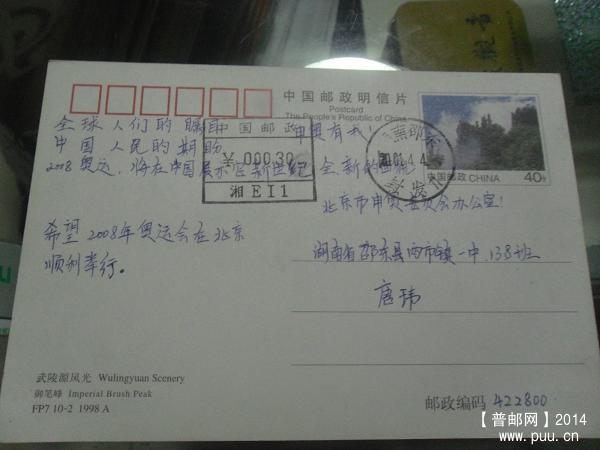 中国邮政明信片
Postcard
The People's Republic of China
中国邮政 CHINA
40分
中国邮政
¥ 000.30
湘 EI1
01.4.4
全球人们的瞩目
中国人民的期盼
2008奥运，将在中国展示
新世纪
申奥有我！
全新的
希望2008年奥运会在北京
顺利举行。
北京市申奥委员会办公室！
湖南省邵东县两市镇一中.138班
唐玮
武陵源风光 Wulingyuan Scenery
御笔峰 Imperial Brush Peak
FP7 10-2 1998 A
邮政编码 422800
【普邮网】2014
www.puu.cn